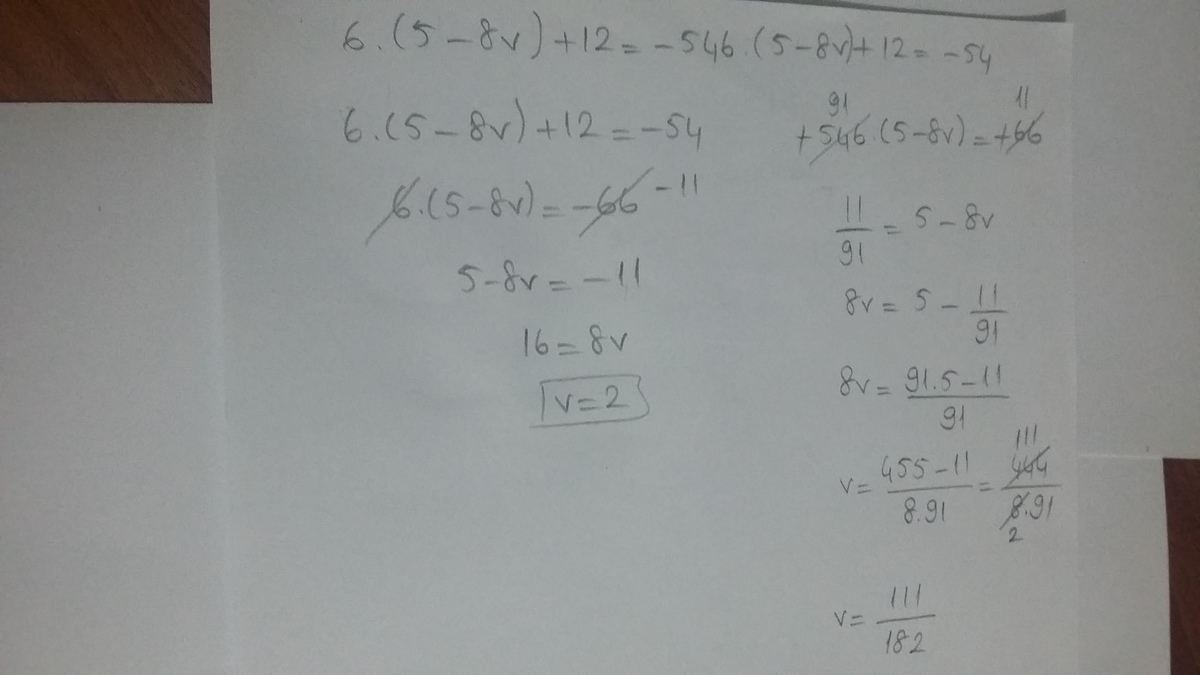 6.(5-8v)+12=-546.(5-8v)+12=-54
6.(5-8v)+12=-54
6.(5-8v)=-66 -11
5-8v=-11
16=8v
v=2
91 11
+546.(5-8v)=+66
11/91=5-8v
8v=5-11/91
8v=91.5-11/91
v=455-11/8.91=444/8.91
111
2
v=111/182